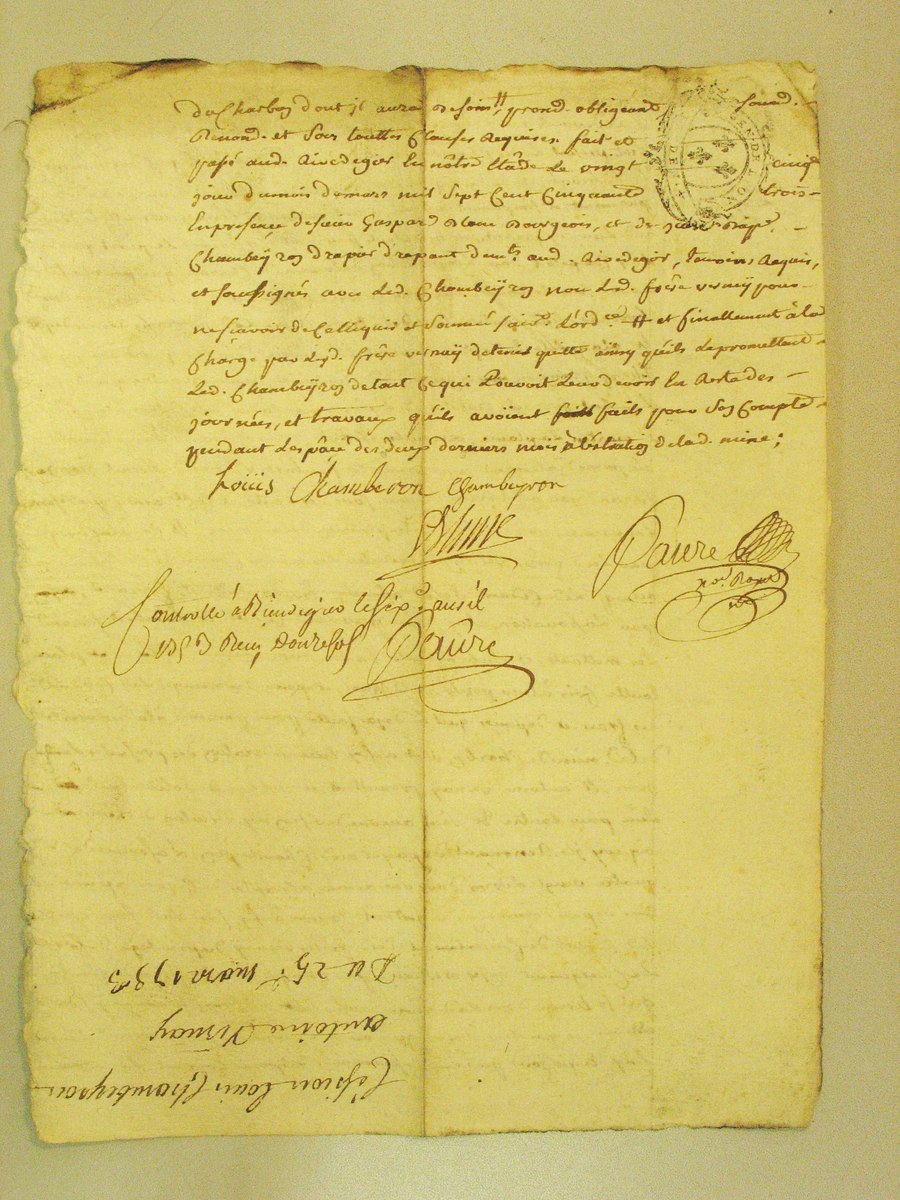 de Charbon dont il aura besoin # promd. obligeant soumd.
Renond. et sous touttes Clauses Requises fait et
passé aud. Rivedegier En nôtre Etude Le vingt cinqe
jour du mois de mars mil Sept Cent Cinquante trois
En presence de sieur Gaspard Bourgeois, et de
Chambeyron drapier drapant demt. aud. Rivedegier, temoins Requis,
et soussignés avec Led. Chambeyron non Led. frère vernaÿ pour
ne sçavoir de Ce Enquis et Sommé # et finallement à la
Charge par Lesd. frère vernaÿ de tenir quitte ainsy quils le promettent
Led. Chambeÿron de tout Ce qui Pouvoit Leur devoir En Reste des
journées, et travaux qu'ils avoient faits pour Son Compte
pendant Lespâce des deux derniers mois à lextraction de lad. mine;
Louis Chamberon Chambeyron
Faure
nore. Royal
Controllé à Rivedegier le avril
1753 Reçu Douze sols Faure
Cession Louis Chambeyron
antoine Vernay
Du 25e. mars 1753